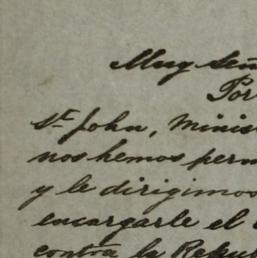 Muy Señ
Por
St. John, Minis
nos hemos perm
y le dirigimos
encargarle el
contra la Repu